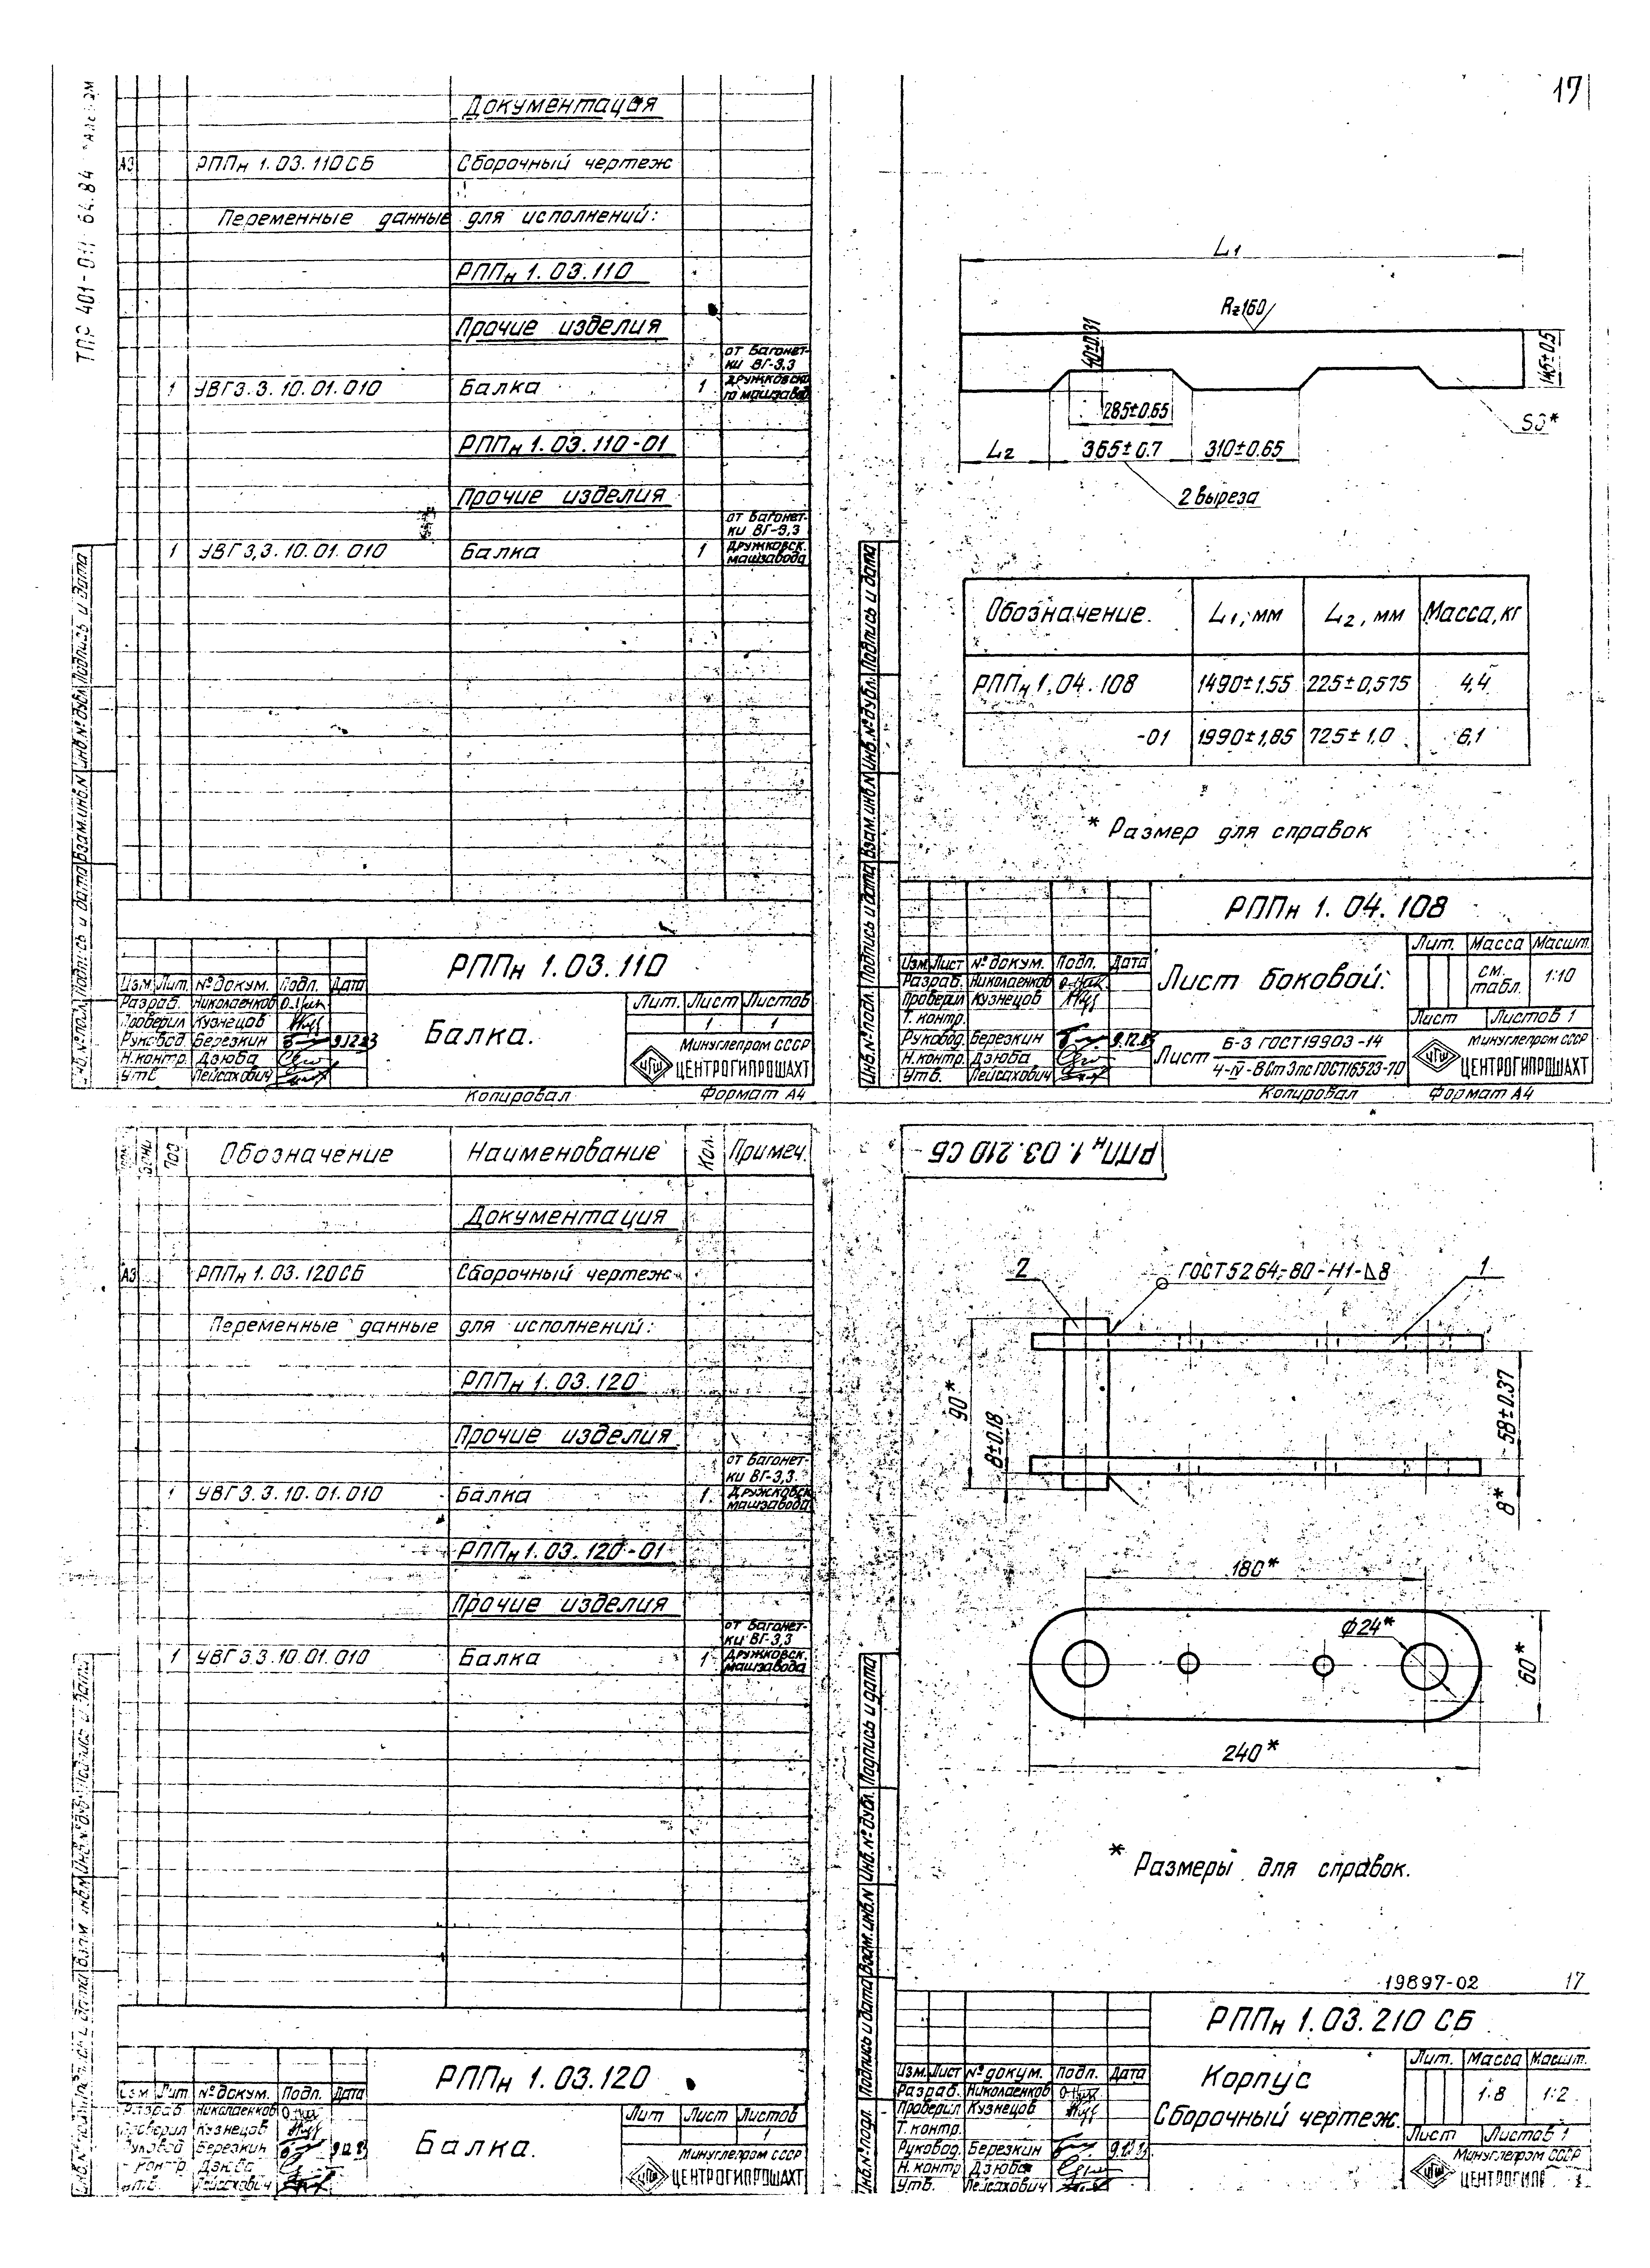 17
ТПР 401-011 64.84
Документация
А3 РППн 1.03.110СБ Сборочный чертеж
Переменные данные для исполнений:
РППн 1.03.110
Прочие изделия
от вагонет-
ки ВГ-3,3
1 УВГ3.3.10.01.010 Балка 1 дружковско
го машзавод
РППн 1.03.110-01
Прочие изделия
от вагонет-
ки ВГ-3,3
1 УВГ3,3.10.01.010 Балка 1 дружковск.
машзавода
Подпись и дата
Инв.№дубл.
Взам.инв.№
Подпись и дата
РППн 1.03.110
Изм. Лит. №докум. Подп. Дата
Разраб. Николаенков
Проверил Кузнецов
Руковод. Березкин 9.12.83
Н.контр. Дзюба
Утв. Лейсахович
Балка.
Лит. Лист Листов
1 1
Минуглепром СССР
ЦЕНТРОГИПРОШАХТ
Копировал Формат А4
L1
Rz160
40±0.31
14,5±0,5
285±0.65
S3*
L2 365±0.7 310±0.65
2 выреза
Обозначение. L1, мм L2, мм Масса, кг
РППн 1.04.108 1490±1.55 225±0,575 4,4
-01 1990±1,85 725±1.0 6,1
* Размер для справок
Подпись и дата
Инв.№дубл.
Взам.инв.№
Подпись и дата
Инв.№подл.
РППн 1.04.108
Изм. Лист №докум. Подп. Дата
Разраб. Николаенков
Проверил Кузнецов
Т.контр.
Руковод. Березкин 9.12.83
Н.контр. Дзюба
Утв. Лейсахович
Лист боковой.
Лит. Масса Масшт.
см. табл. 1:10
Лист Листов 1
Лист Б-3 ГОСТ19903-14
4-IV-ВСт3пс ГОСТ16523-70
Минуглепром СССР
ЦЕНТРОГИПРОШАХТ
Копировал Формат А4
Поз Обозначение Наименование Кол. Примеч.
Документация
А3 РППн 1.03.120СБ Сборочный чертеж
Переменные данные для исполнений:
РППн 1.03.120
Прочие изделия
от вагонет-
ки ВГ-3,3
1 УВГ3.3.10.01.010 Балка 1. Дружковск
машзавода
РППн 1.03.120-01
Прочие изделия
от вагонет-
ки ВГ-3,3
1 УВГ3,3.10.01.010 Балка 1 Дружковск.
машзавода
РППн 1.03.120
Изм Лит №докум. Подп. Дата
Разраб Николаенков
Проверил Кузнецов
Руковод Березкин
Н.контр Дзюба
Утв. Лейсахович
Балка.
Лит Лист Листов
1
Минуглепром СССР
ЦЕНТРОГИПРОШАХТ
РППн 1.03.210 СБ
2
ГОСТ5264-80-Н1-⊿8
1
90*
8±0.18
58±0.37
8*
180*
ф24*
60*
240*
* Размеры для справок.
Подпись и дата
Инв.№дубл.
Взам.инв.№
Подпись и дата
Инв.№подл.
19897-02 17
РППн 1.03.210 СБ
Изм. Лист №докум. Подп. Дата
Разраб. Николаенков
Проверил Кузнецов
Т.контр.
Руковод. Березкин
Н.контр Дзюба
Утв. Лейсахович
Корпус
Сборочный чертеж.
Лит. Масса Масшт.
1.8 1:2
Лист Листов 1
Минуглепром СССР
ЦЕНТРОГИПР